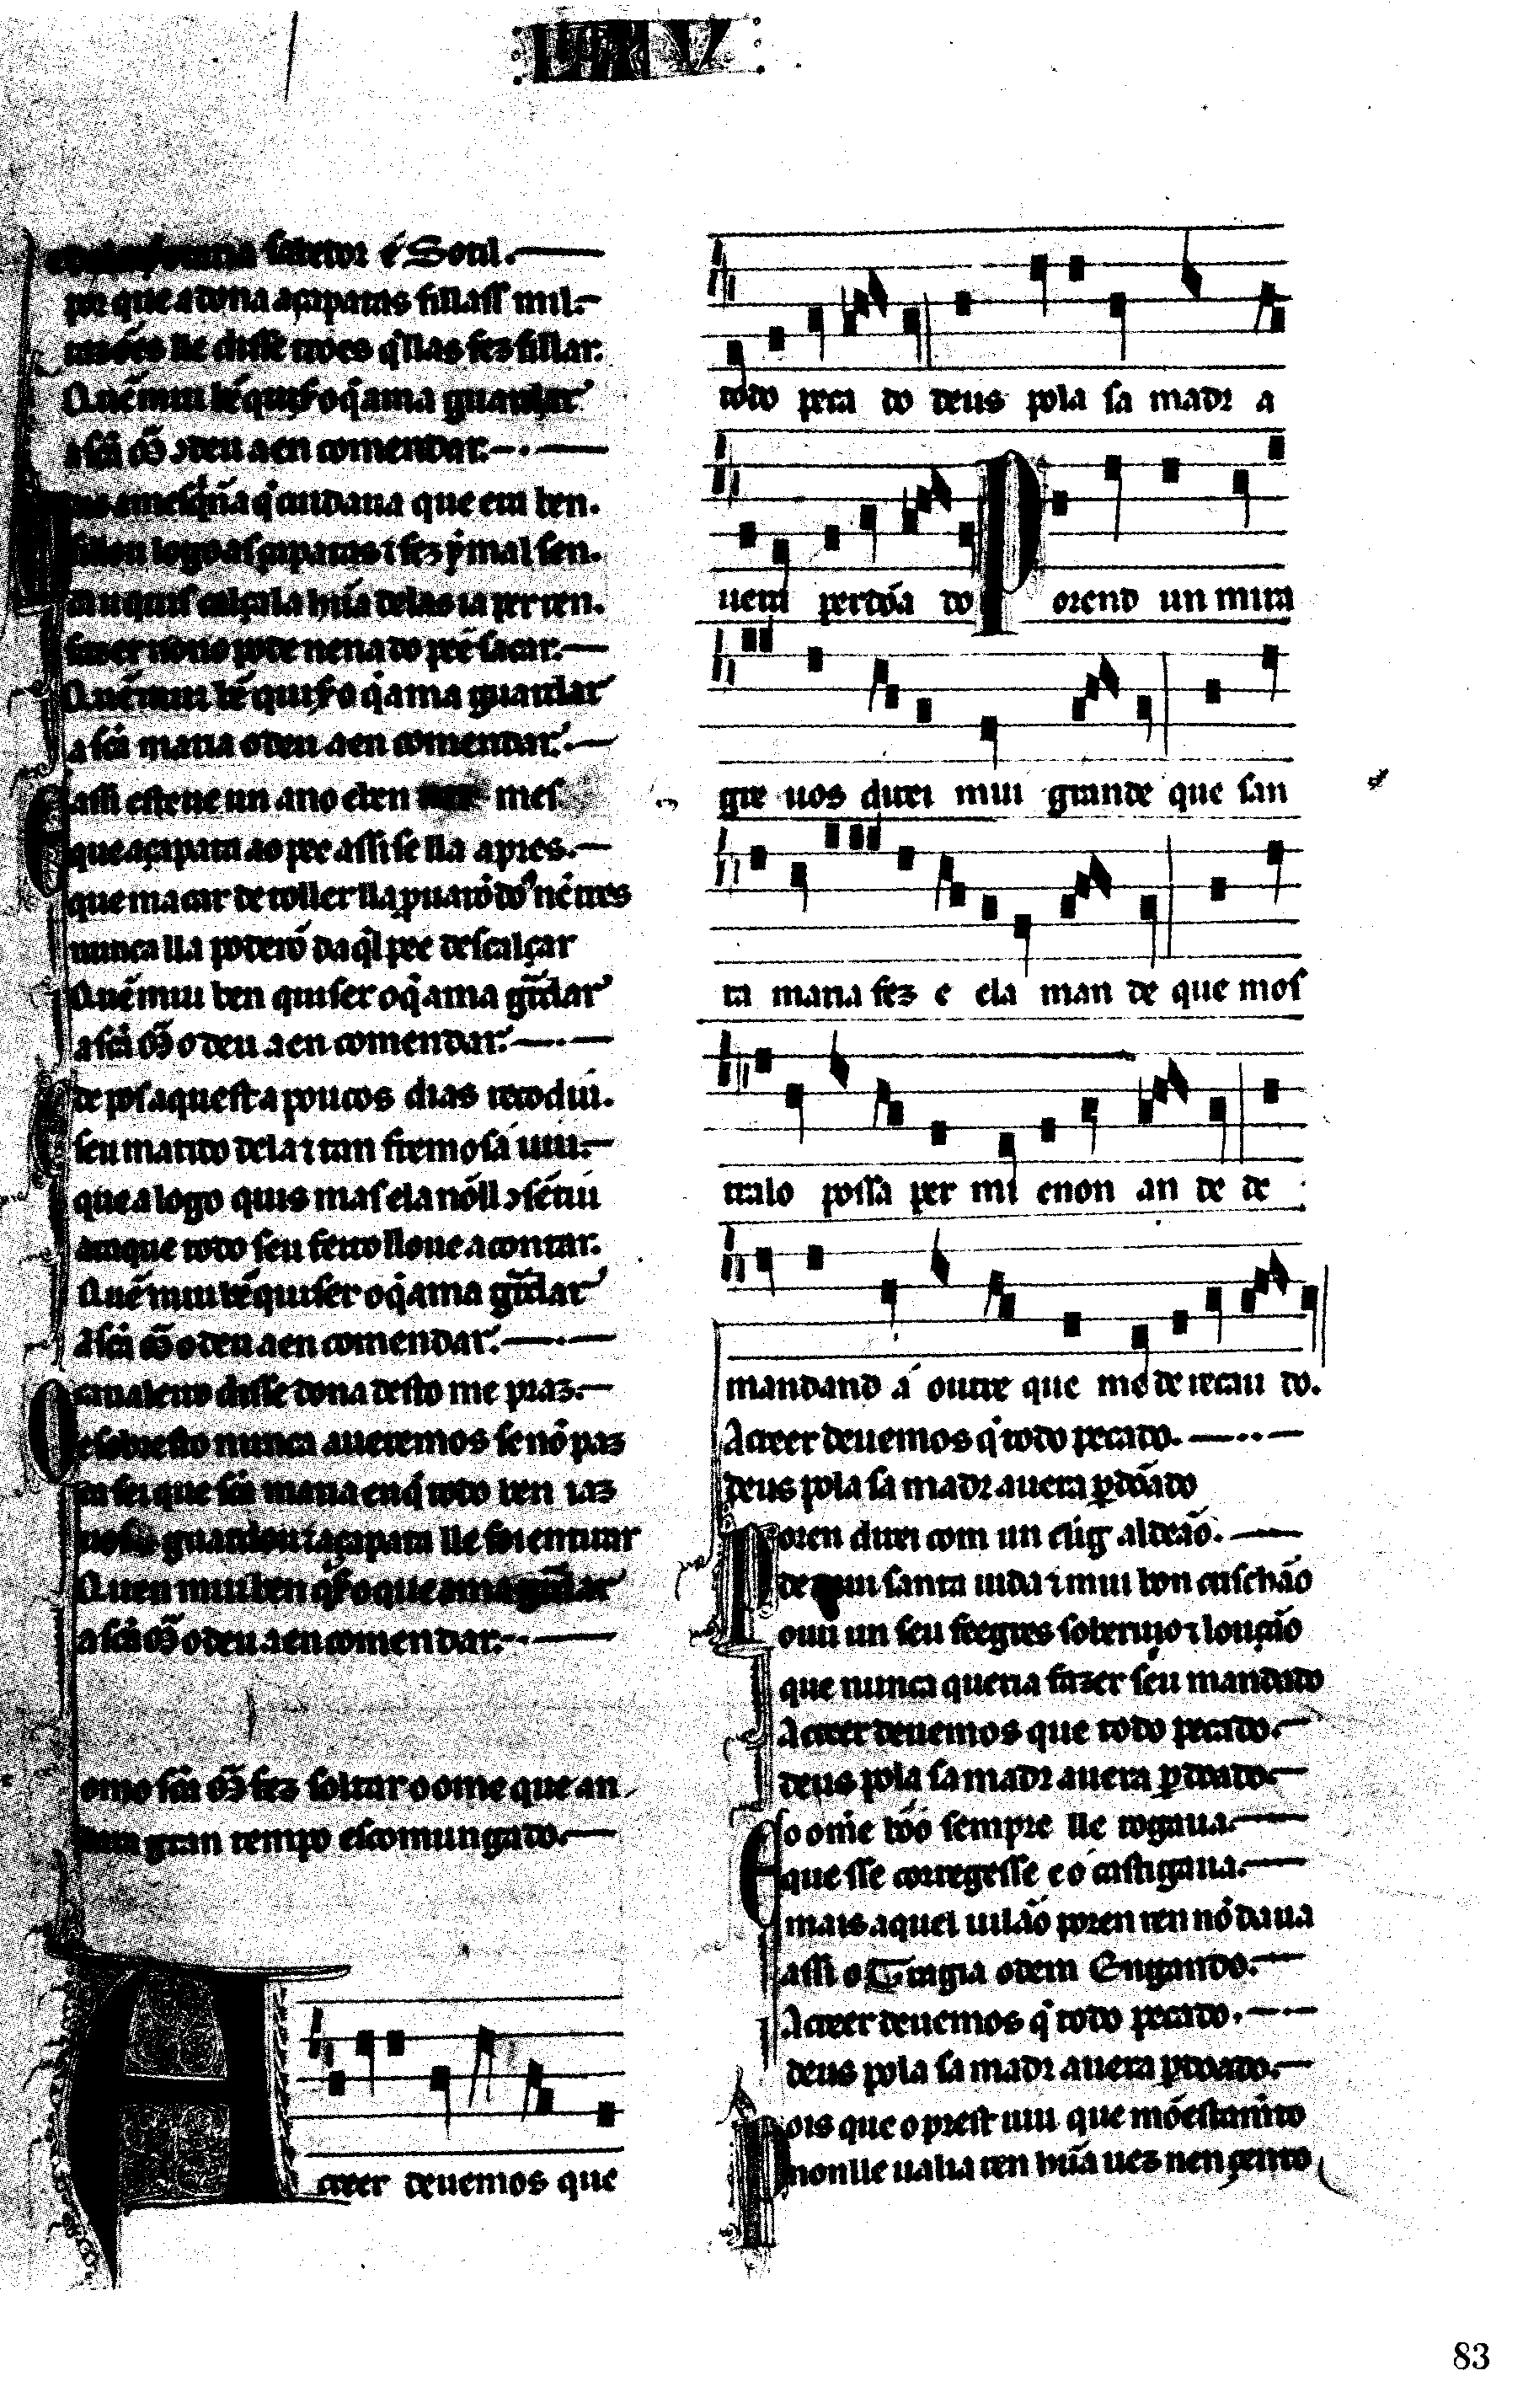 LXIV
sabedor é Sotil.
por que a dona açapatas fillass mil.
razões lle disse troes q̇ llas fez fillar.
Quẽ mui bẽ quiſ̉ o q̇ ama guardar
a sċa M̃ ↄ deu a en comendar.
que era ben.
fillou logo as çapatas ⁊ fez y̓ mal sen.
ca u quis calçala hũa delas ia per ren.
fazer nõno pode nena do peé sacar.
Quẽ mui bẽ quiſ̉ o q̇ ama guardar
a sċa maria o deu a en comendar.
assi esteue un ano e ben mes
que açapata ao pee assi se lla apres.
que macar de toller lla ꝓuarõ do⁹ nẽ tres
nunca lla poderõ daq̇l pee descalçar
Quẽ mui ben quiser o q̇ ama g̃rdar
a sċa M̃ o deu a en comendar.
de pos aquest a poucos dias recodiu.
seu marido dela ⁊ tan fremosa uiu.
que a logo quis mas ela nõ ll ↄsẽtiu
ataque todo seu feito lloue a contar.
Quẽ mui bẽ quiser o q̇ ama g̃rdar
a sċa M̃ o deu a en comendar.
O caualeiro disse dona desto me praz.
e sobresto nunca aueremos se nõ paz
ca sei que sċa maria en q̇ todo ben iaz
uos guardou ⁊ açapata lle foi en tirar
Quen mui ben q̇ſ̉ o que ama g̃rdar
a sċa M̃ o deu a en comendar.
omo sċa M̃ fez soltar o ome que an
dara gran tempo escomungado.
A creer deuemos que
todo peca do deus pola sa madr a
uera perdõa do Porend un mira
gre uos direi mui grande que san
ta maria fez e ela man de que mos
tralo possa per mi enon an de de
mandand á outre que mo de recau do.
A creer deuemos q̇ todo pecado.
deus pola sa madr auera ꝑdõado
Poren direi com un clig aldeão.
de mui santa uida ⁊ mui bon cristhão
ouu un seu feegres soberuio ⁊ loução
que nunca queria fazer seu mandado
A creer deuemos que todo pecado.
deus pola sa madr auera ꝑdoado.
E o ome bõo sempre lle rogaua.
que sse corregesse e o castigaua.
mais aquel uilão poren ren nõ daua
assi o Tragia o dem Engando.
A creer deuemos q̇ todo pecado.
deus pola sa madr auera ꝑdoado.
Pois que o prest uiu que mõestamẽto
non lle ualia ren hũa uez nen çento
83